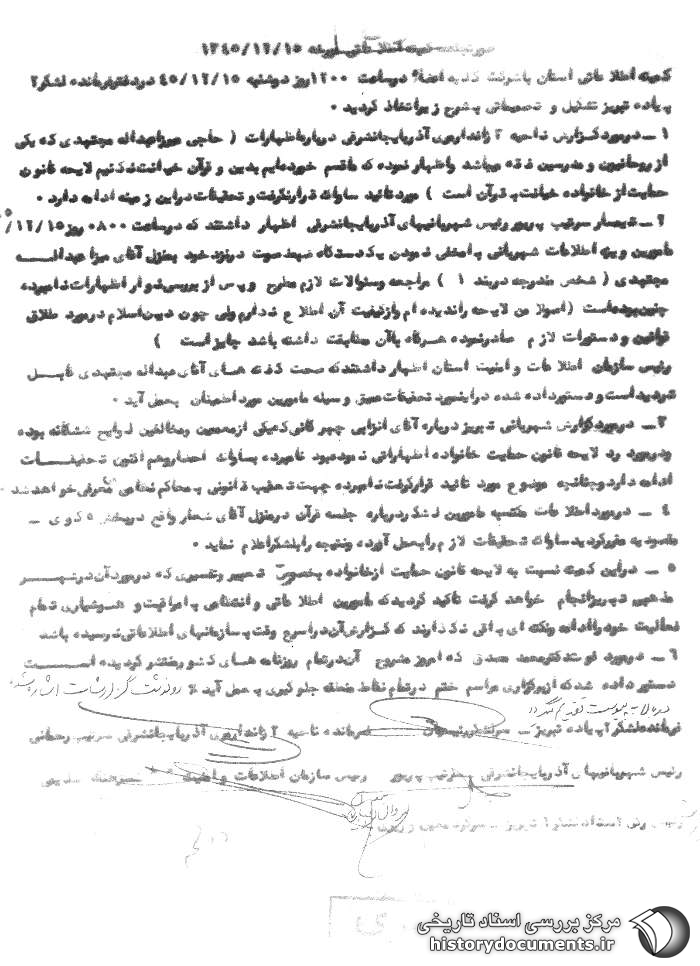 صورتجلسه کمیته اطلاعاتی مورخه ۱۳۴۵/۱۲/۱۵
کمیته اطلاعاتی استان باشرکت کلیه اعضاء درساعت ۱۲۰۰ روز دوشنبه ۴۵/۱۲/۱۵ دردفترفرمانده لشکر۲
پیاده تبریز تشکیل و تصمیماتی بشرح زیراتخاذ گردید .
۱ ـ درموردگزارش ناحیه ۲ ژاندارمری آذربایجانشرقی درباره اظهارات ( حاجی میرزاعبداله مجتهدی که یکی
از روحانیون و مدرسین فقه میباشد واظهار نموده که ماقسم خورده‌ایم بدین و قرآن خیانت نکنیم لایحه قانون
حمایت از خانواده خیانت به قرآن است ) مورد تائید ساواک قرارنگرفت و تحقیقات دراین زمینه ادامه دارد .
۲ ـ تیمسار سرتیپ پریور رئیس شهربانیهای آذربایجانشرقی اظهار داشتند که درساعت ۰۸۰۰ روز ۴۵/۱۲/۱۵
مامورین ویژه اطلاعات شهربانی با مخفی نمودن یکدستگاه ضبط صوت درنزد خود بمنزل آقای میرزا عبداله
مجتهدی ( شخص مندرجه دربند ۱ ) مراجعه وسئوالات لازم مطرح و پس از بررسی نوار اظهارات نامبرده
چنین بوده است (اصولا من لایحه راندیده ام وازکیفیت آن اطلاع ندارم ولی چون دین اسلام درمورد طلاق
قوانین و دستورات لازم صادرنموده هرگاه باآن مطابقت داشته باشد جایز است )
رئیس سازمان اطلاعات و امنیت استان اظهار داشتند که صحت گفته های آقای عبداله مجتهدی قابل
تردید است و دستور داده شده دراینمورد تحقیقات عمیق و سیله مامورین مورد اطمینان بعمل آید .
۳ ـ درموردگزارش شهربانی تبریز درباره آقای انزابی چهرگانی که یکی از معممین ومخالفین لوایح ششگانه بوده
ودرمورد رد لایحه قانون حمایت خانواده اظهاراتی نموده بود نامبرده بساواک احضار وهم اکنون تحقیقات
ادامه دارد وچنانچه موضوع مورد تائید قرارگرفت نامبرده جهت تعقیب قانونی به محاکم نظامی معرفی خواهد شد .
۴ ـ درمورد اطلاعات مکتسبه مامورین لشکر درباره جلسه قرآن درمنزل آقای شعار واقع دربخش ۵ کوی ـ
مقصودیه مقررگردید ساواک تحقیقات لازم رابعمل آورده ونتیجه رابلشکر اعلام نماید .
۵ ـ دراین کمیته نسبت به لایحه قانون حمایت ازخانواده بخصوص تعبیر وتفسیری که درمورد آن درشهر
مذهبی تبریز انجام خواهد گرفت تاکید گردید که مامورین اطلاعاتی و انتظامی با مراقبت و هوشیاری تمام
فعالیت خود را ادامه ونکته ای باقی نگذارند که گزارش آن دراسرع وقت به سازمانهای اطلاعاتی نرسیده باشد
۶ ـ درمورد فوت دکتر محمد مصدق که امروز مشروح آن درتمام روزنامه های کشور منتشر گردیده است
دستور داده شد که ازبرگزاری مراسم ختم درتمام نقاط منطقه جلوگیری بعمل آید .
فرمانده لشکر۲ پیاده تبریز ـ سرلشگر فرمانده ناحیه ۲ ژاندارمری آذربایجانشرقی سرتیپ رحمانی
رئیس شهربانیهای آذربایجانشرقی سرتیپ پریور رئیس سازمان اطلاعات و امنیت سرهنگ
رئیس رکن ۲ ستاد لشکر۲ تبریز
مرکز بررسی اسناد تاریخی
historydocuments.ir